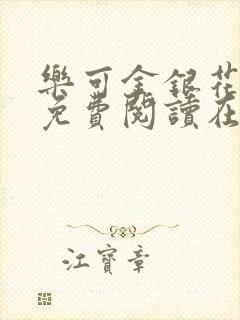 樂可金銀花
免費閱讀在
江寶章